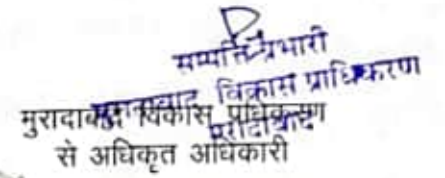 सम्पत्ति प्रभारी
मुरादाबाद विकास प्राधिकरण
मुरादाबाद
मुरादाबाद विकास प्राधिकरण
से अधिकृत अधिकारी